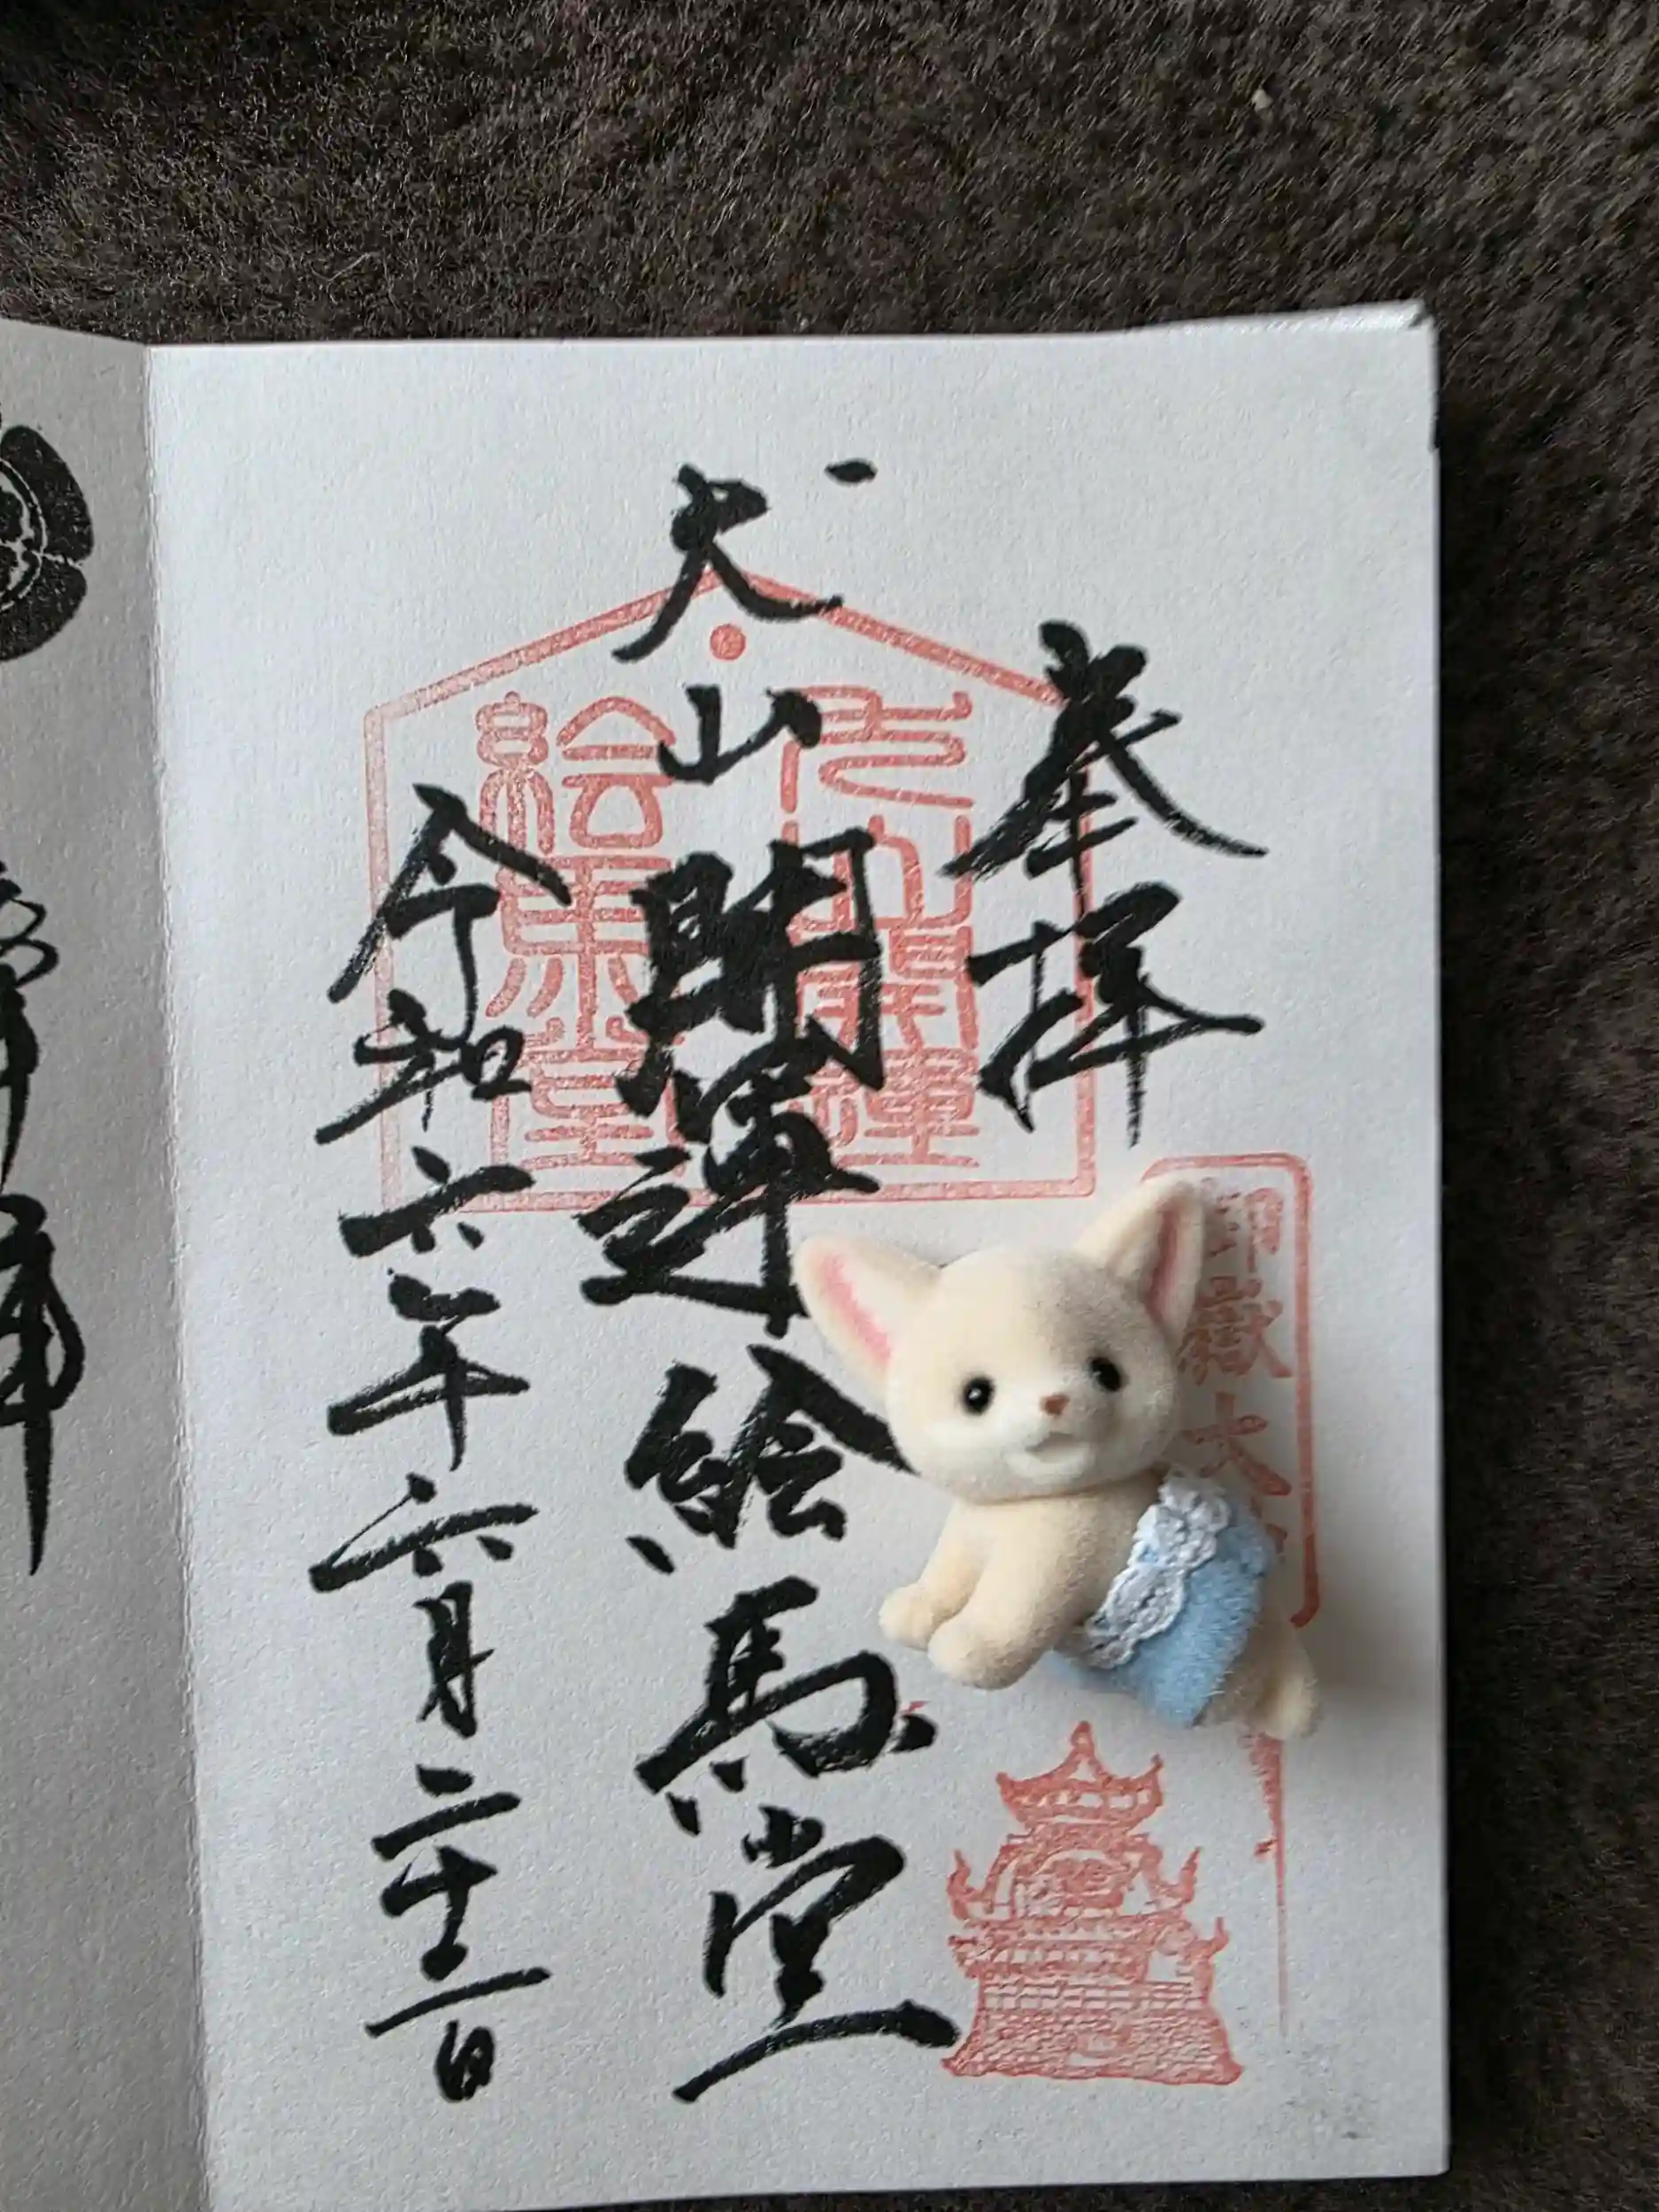 奉拝
御嶽大
犬山開運絵馬堂
犬山開運
絵馬堂
令和六年六月二十一日